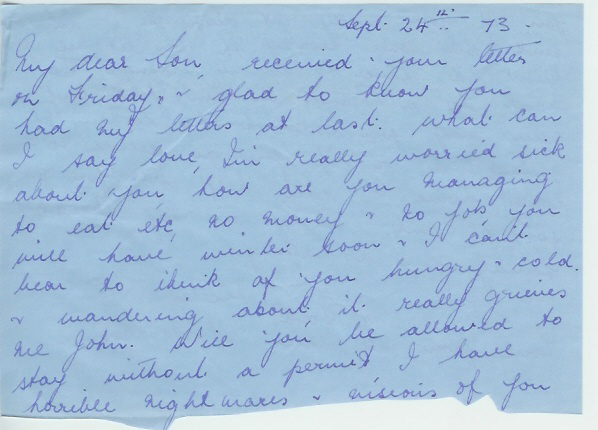 Sept. 24th.. 73.
My dear Son, received your letter
on Friday, & glad to know you
had my letters at last. What can
I say love, I'm really worried sick
about you, how are you managing
to eat etc, no money & no job, you
will have winter soon & I can't
bear to think of you hungry & cold.
& wandering about, it really grieves
me John. Will you be allowed to
stay without a permit I have
horrible nightmares & visions of you